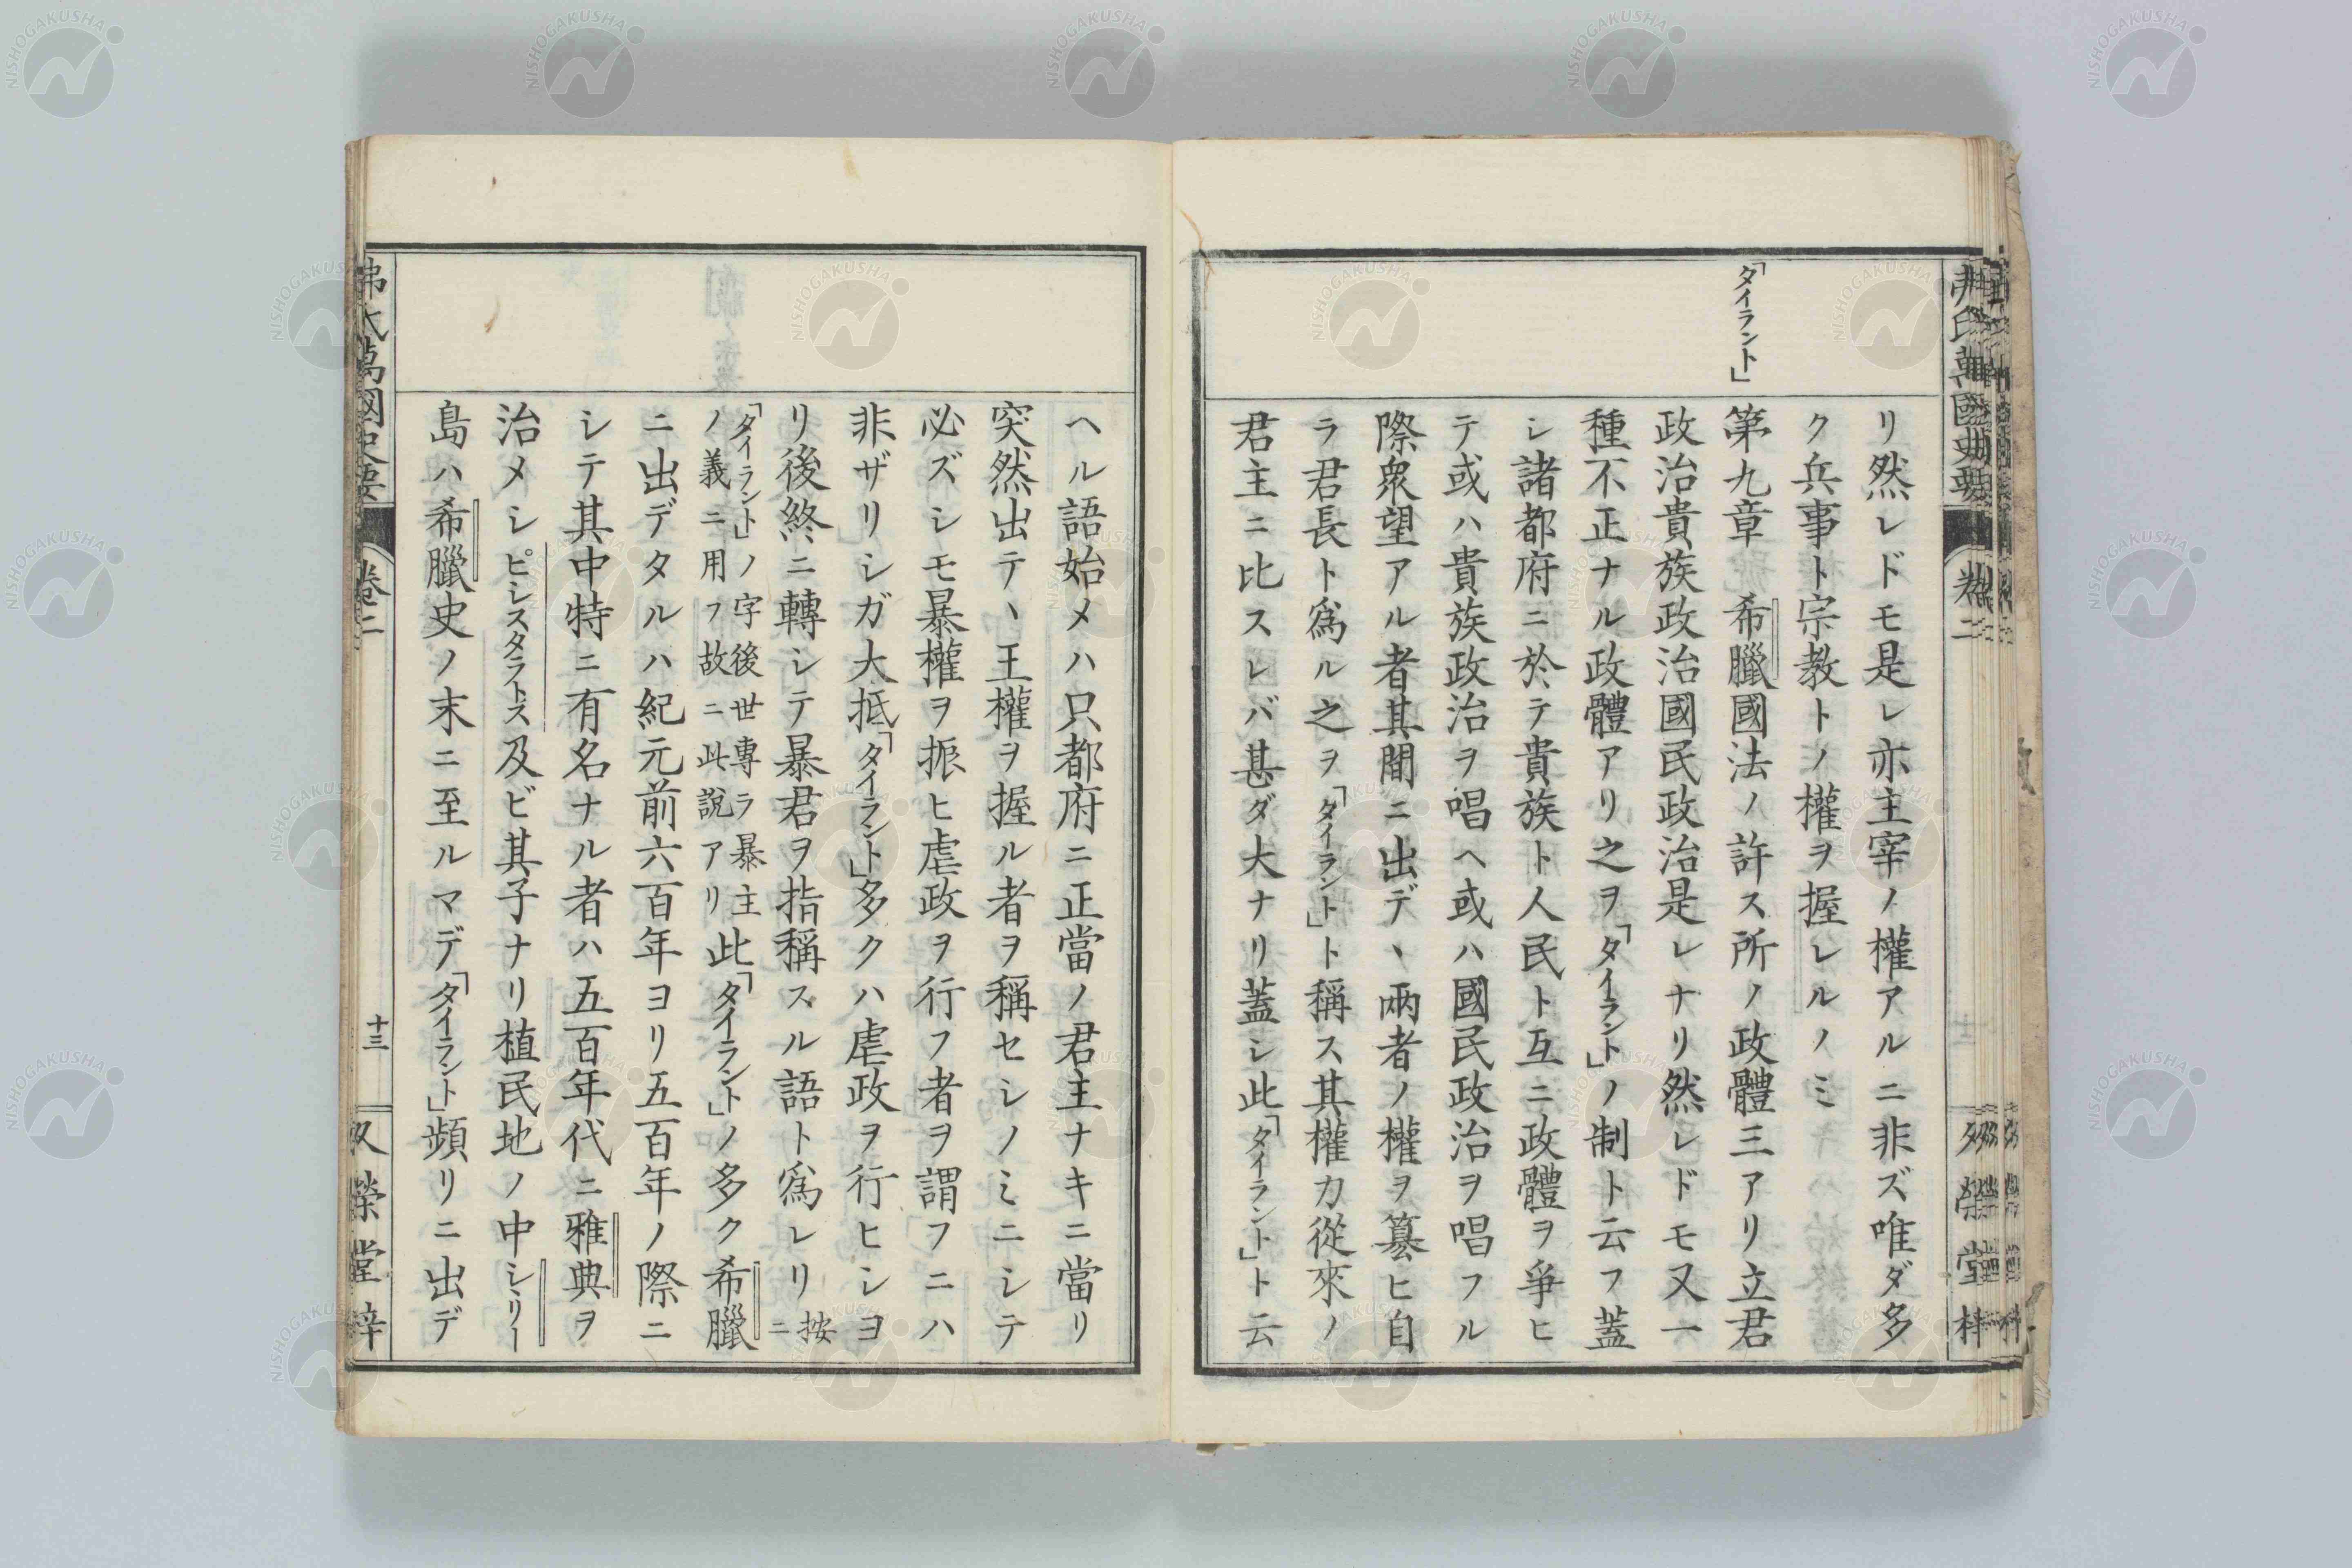 「タイラント」
リ然レドモ是レ亦主宰ノ權アルニ非ズ唯ダ多
ク兵事ト宗教トノ權ヲ握レルノミ
第九章　希臘國法ノ許ス所ノ政體三アリ立君
政治貴族政治國民政治是レナリ然レドモ又一
種不正ナル政體アリ之ヲ「タイラント」ノ制ト云フ蓋
シ諸都府ニ於テ貴族ト人民ト互ニ政體ヲ爭ヒ
テ或ハ貴族政治ヲ唱ヘ或ハ國民政治ヲ唱フル
際衆望アル者其間ニ出デヽ兩者ノ權ヲ簒ヒ自
ラ君長ト爲ル之ヲ「タイラント」ト稱ス其權力從來ノ
君主ニ比スレバ甚ダ大ナリ蓋シ此「タイラント」ト云
ヘル語始メハ只都府ニ正當ノ君主ナキニ當リ
突然出テヽ王權ヲ握ル者ヲ稱セシノミニシテ
必ズシモ暴權ヲ振ヒ虐政ヲ行フ者ヲ謂フニハ
非ザリシガ大抵「タイラント」多クハ虐政ヲ行ヒシヨ
リ後終ニ轉シテ暴君ヲ指稱スル語ト爲レリ按ニ
「タイラント」ノ字後世專ラ暴主
ノ義ニ用フ故ニ此說アリ
此「タイラント」ノ多ク希臘
ニ出デタルハ紀元前六百年ヨリ五百年ノ際ニ
シテ其中特ニ有名ナル者ハ五百年代ニ雅典ヲ
治メシピシスタラトス及ビ其子ナリ植民地ノ中シリー
島ハ希臘史ノ末ニ至ルマデ「タイラント」頻リニ出デ
弗氏萬國史要
卷二
十三
又榮堂梓
NISHOGAKUSHA